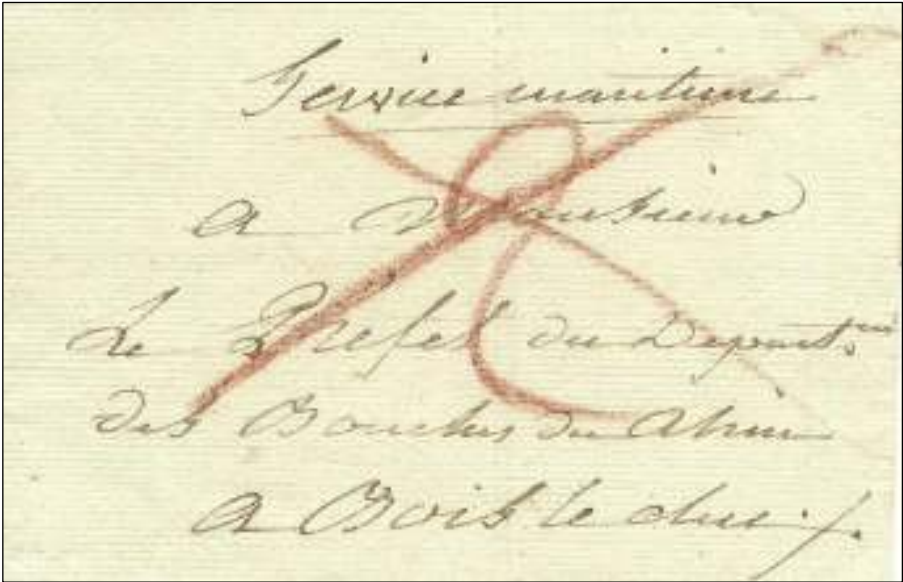 Service maritime
a Monsieur
Le Prefet du Depart.ment
des Bouches du Rhin
a Bois le duc ./.